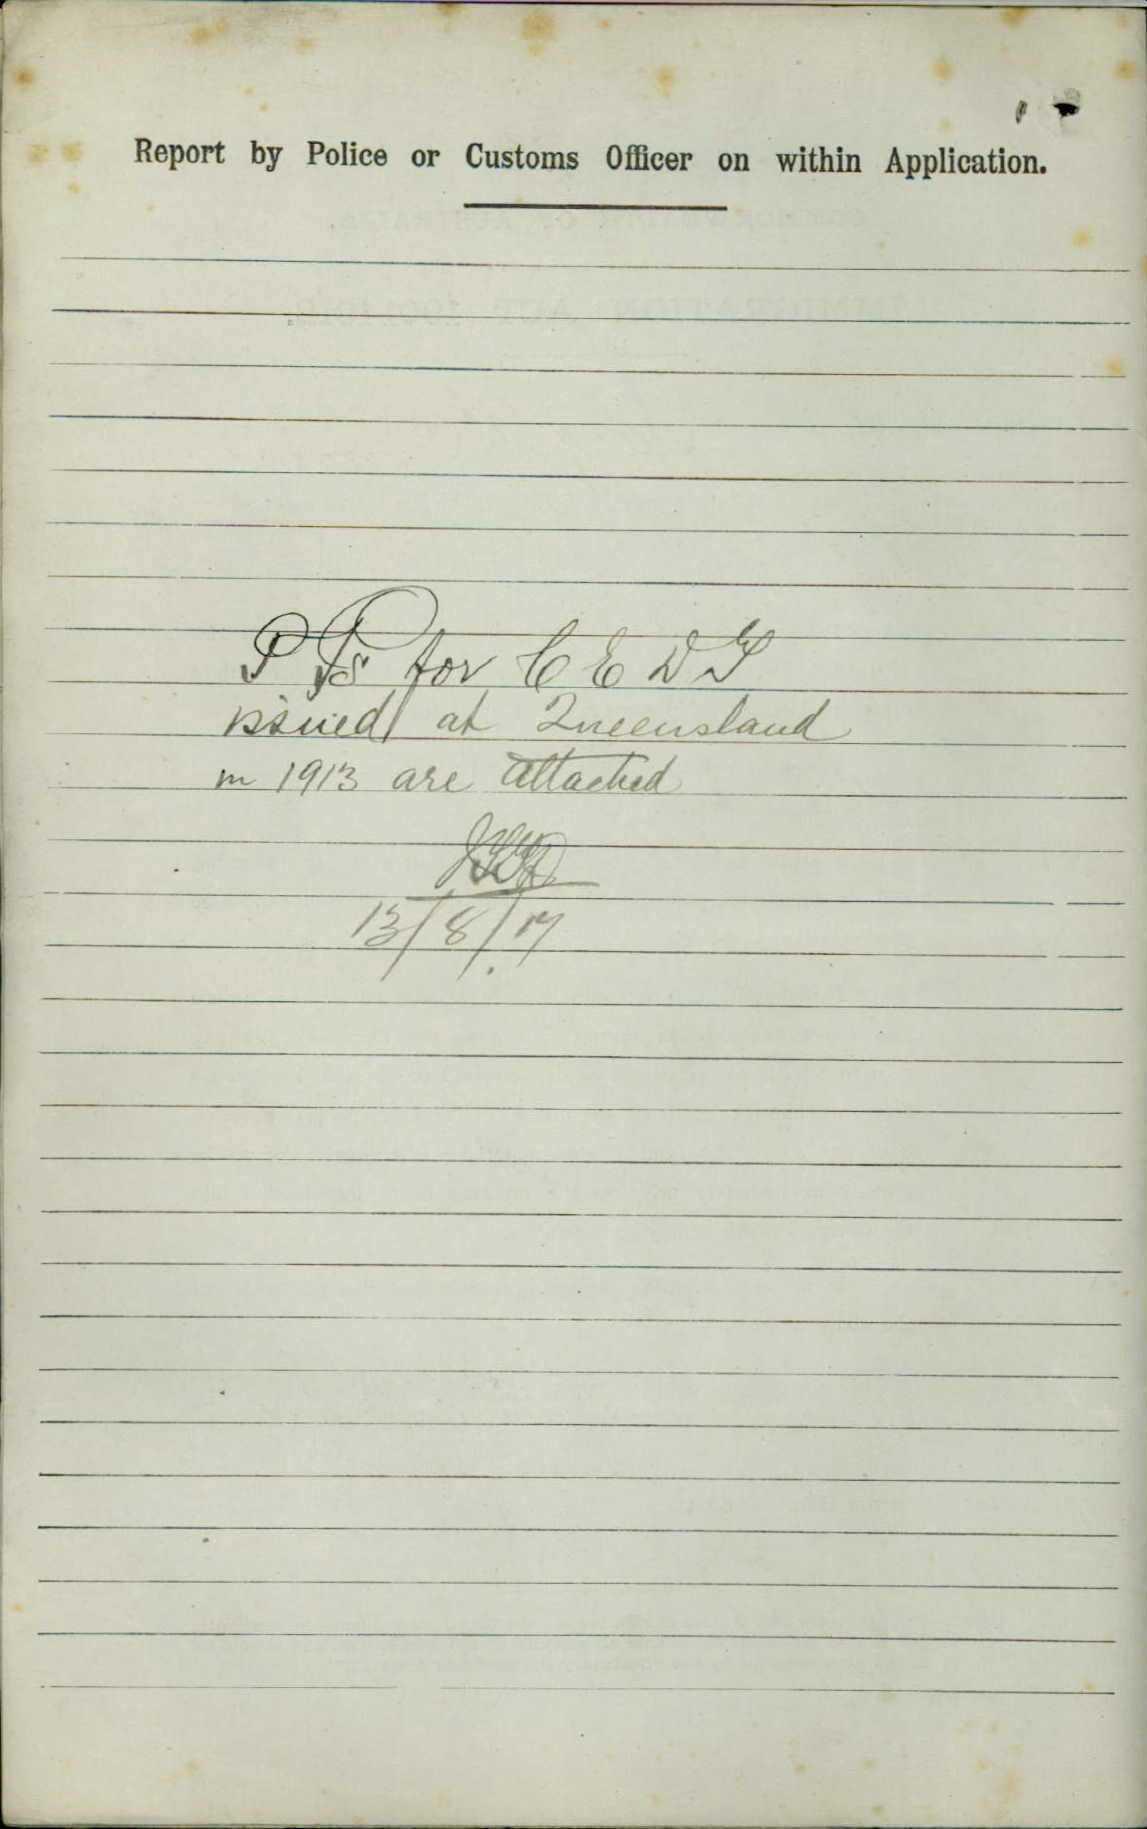 Report by Police or Customs Officer on within Application.
P Ps for C E D T
issued at Queensland
in 1913 are attached
13/8/17